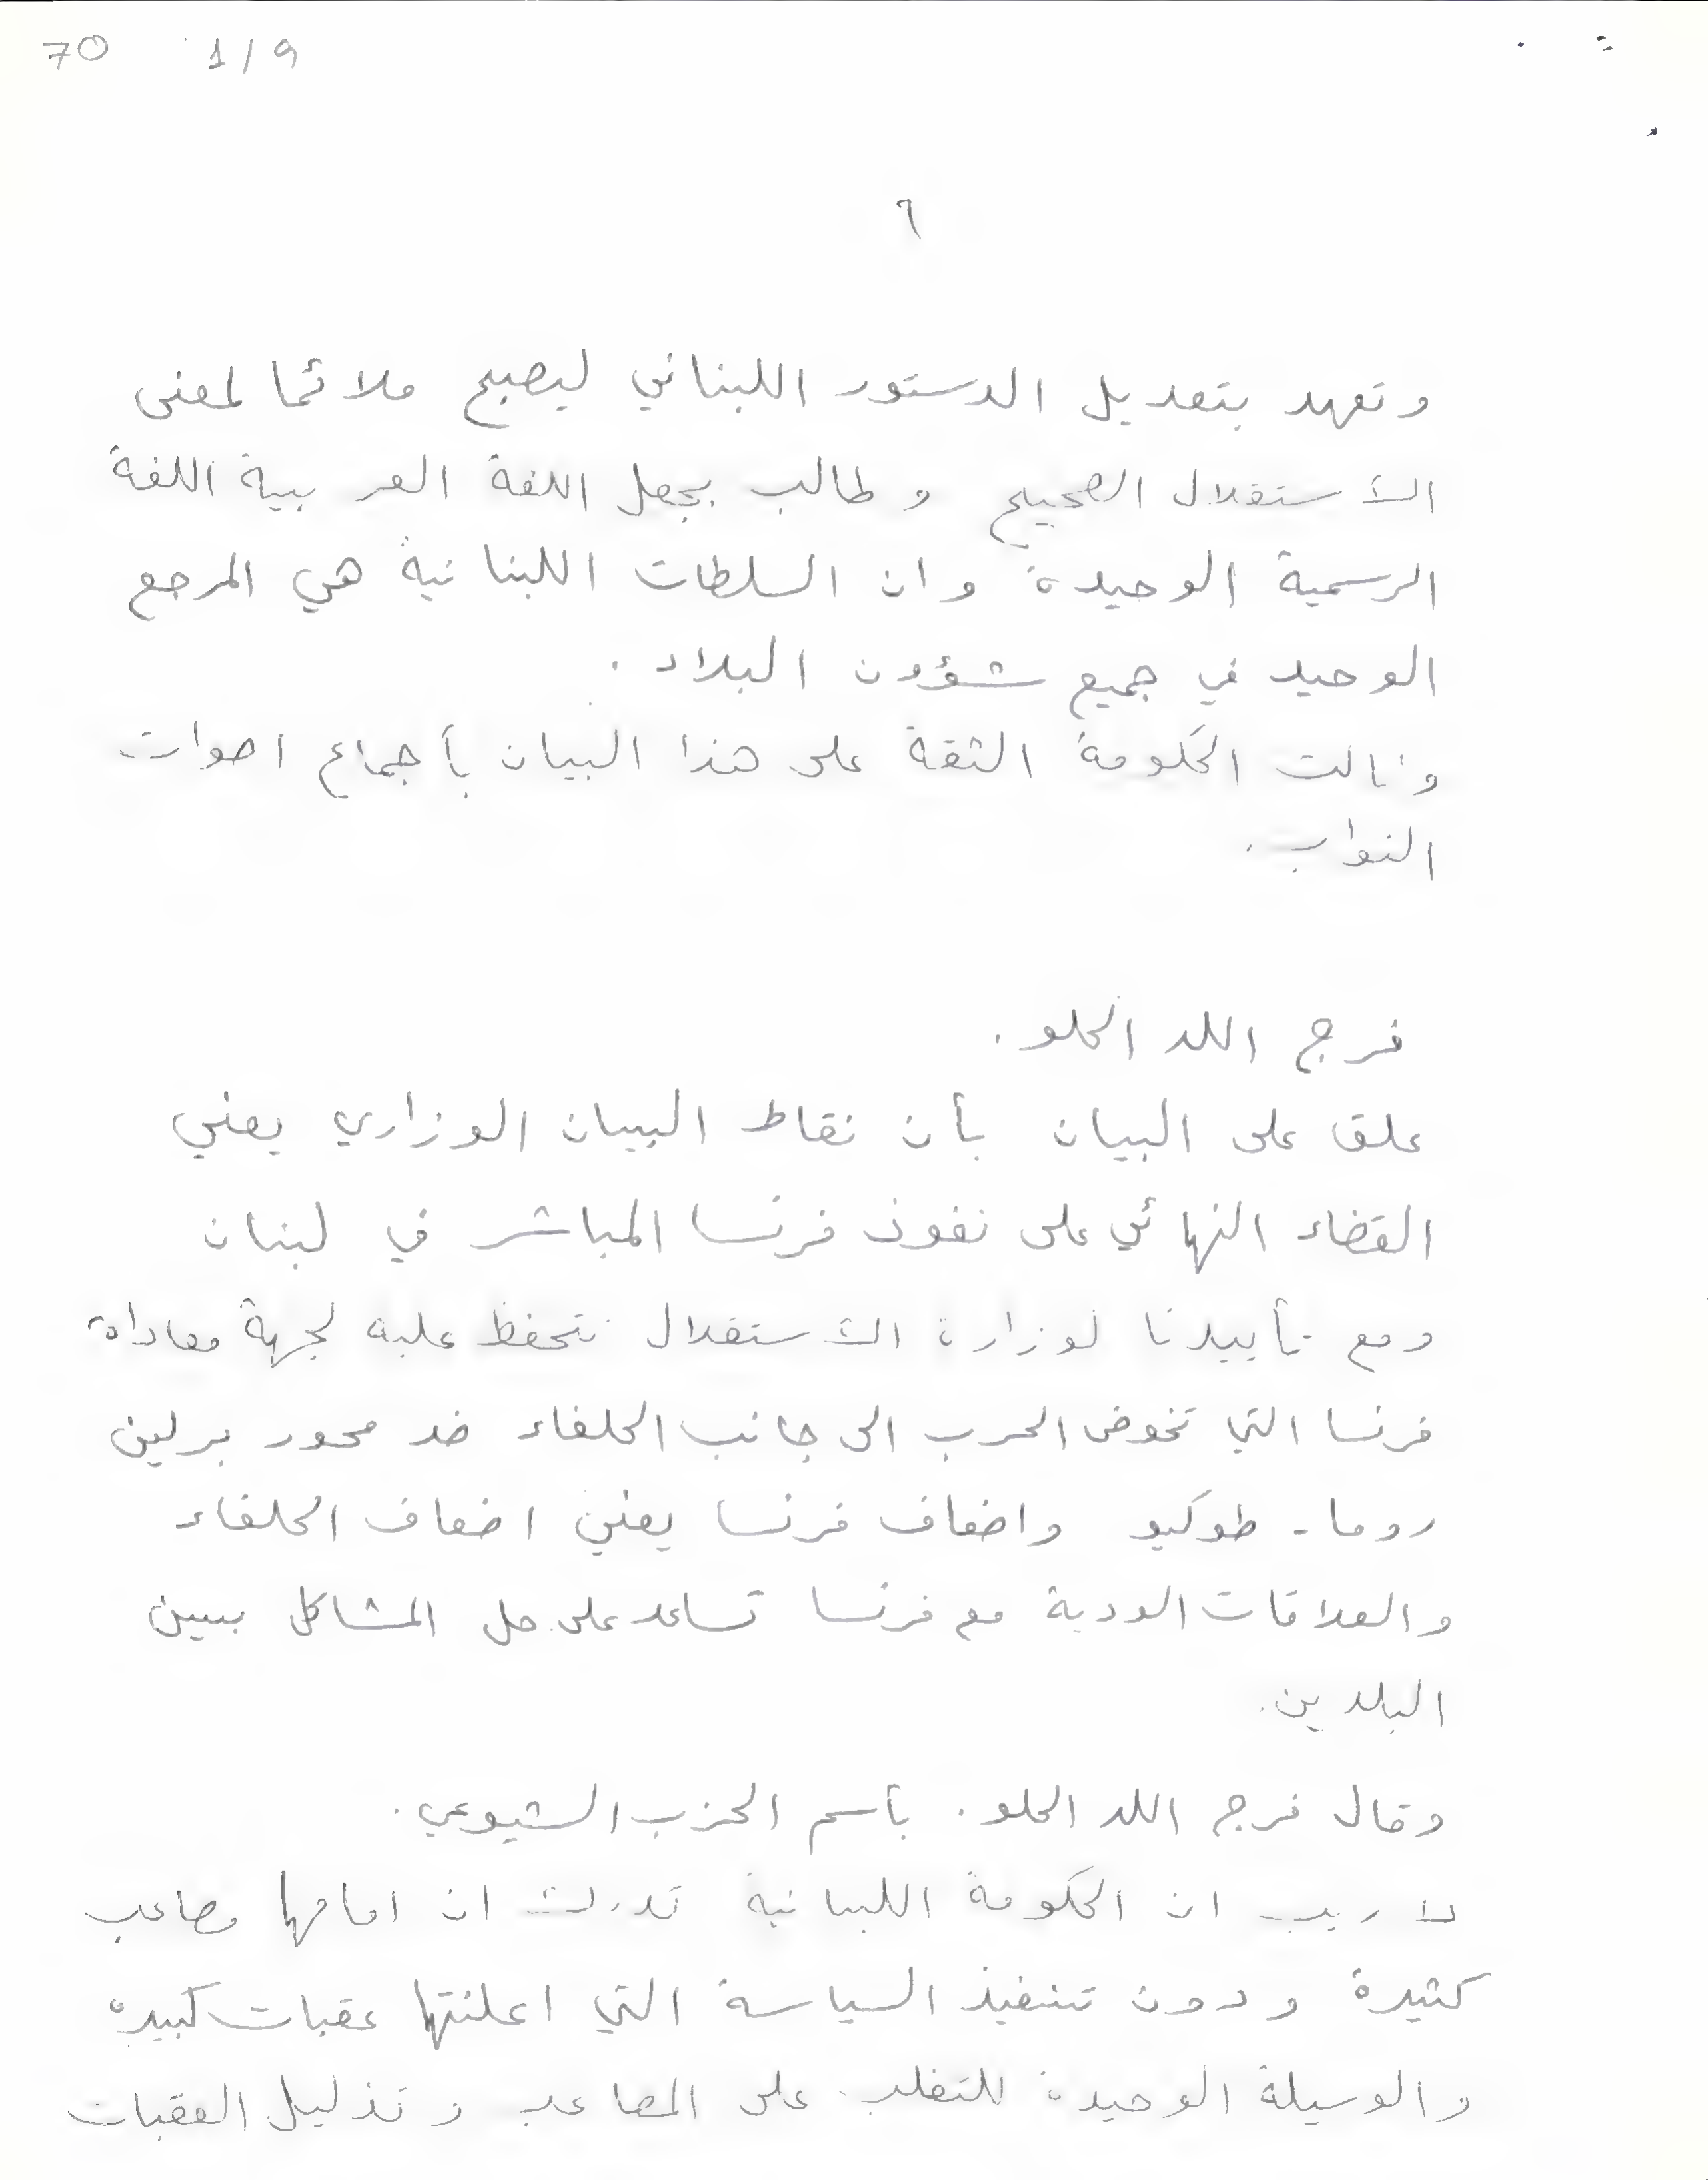 70 1/9
٦
وتعهد بتعديل الدستور اللبناني ليصبح ملائما لمعنى
الاستقلال الصحيح وطالب بجعل اللغة العربية اللغة
الرسمية الوحيدة وان السلطات اللبنانية هي المرجع
الوحيد في جميع شؤون البلاد.
ونالت الحكومة الثقة على هذا البيان بأجماع اصوات
النواب.
فرج الله الحلو.
علق على البيان بأن نقاط البيان الوزاري يعني
القضاء النهائي على نفوذ فرنسا المباشر في لبنان
ومع تأييدنا لوزارة الاستقلال نتحفظ عليه لجهة معاداة
فرنسا التي تخوض الحرب الى جانب الحلفاء ضد محور برلين
روما - طوكيو واضعاف فرنسا يعني اضعاف الحلفاء
والعلاقات الودية مع فرنسا تساعد على حل المشاكل بين
البلدين.
وقال فرج الله الحلو. بأسم الحزب الشيوعي.
لا ريب ان الحكومة اللبنانية تدرك ان امامها مصاعب
كثيرة ودون تنفيذ السياسة التي اعلنتها عقبات كبيرة
والوسيلة الوحيدة للتغلب على المصاعب وتذليل العقبات